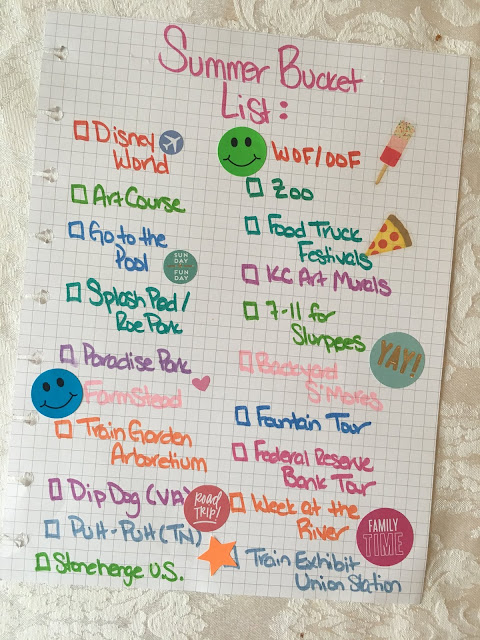 Summer Bucket
List:
Disney
World
Art Course
Go to the
Pool
SUN
DAY
FUN
DAY
Splash Pad/
Roe Park
Paradise Park
Farmstead
Train Garden
Arboretium
Dip Dog (VA)
ROAD
TRIP!
Putt-Putt (TN)
Stonehenge U.S.
WOF/OOF
Zoo
Food Truck
Festivals
KC Art Murals
7-11 for
Slurpees
YAY!
Backyard
S'Mores
Fountain Tour
Federal Reserve
Bank Tour
Week at the
River
FAMILY
TIME
Train Exhibit
Union Station